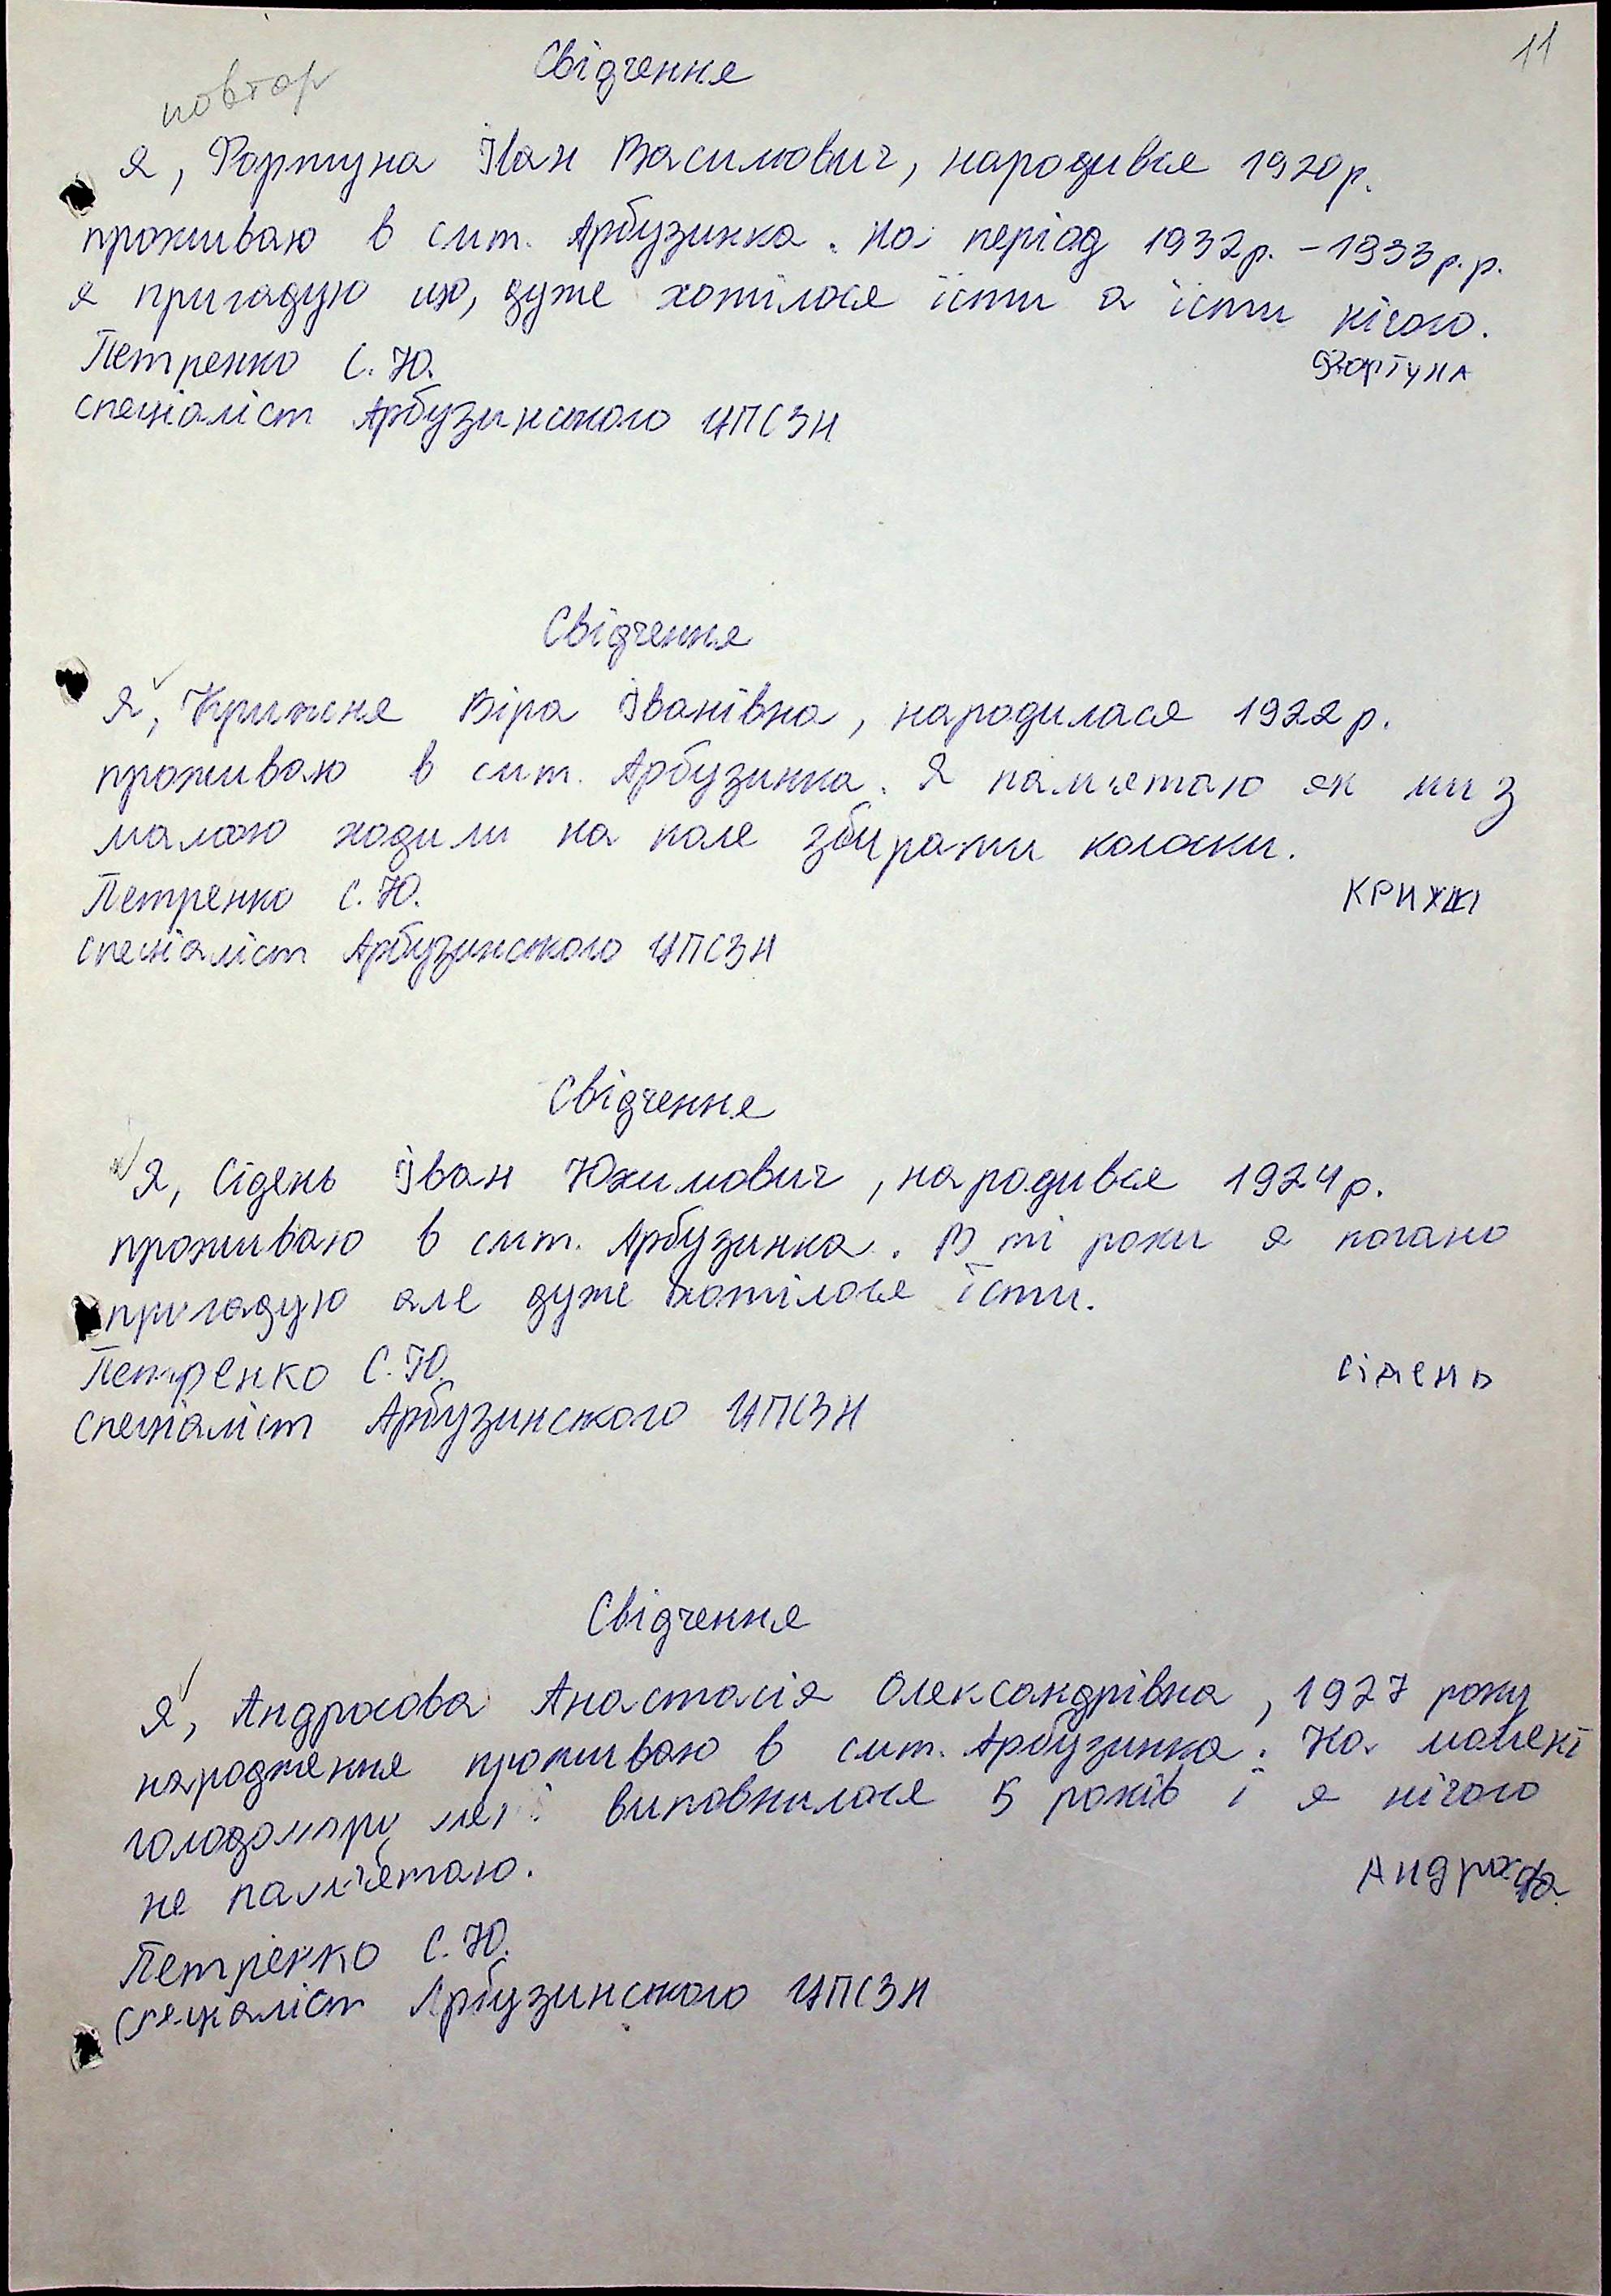 11
повтор
Свідчення
Я, Фортуна Іван Васильович, народився 1920р.
проживаю в смт. Арбузинка. На період 1932р. - 1933р.р.
я пригадую що, дуже хотілося їсти а їсти нічого.
Фортуна
Петренко С.Ю.
спеціаліст Арбузинського ЦПСЗН
Свідчення
Я, Крижня Віра Іванівна, народилася 1922р.
проживаю в смт. Арбузинка. Я пам'ятаю як ми з
мамою ходили на поле збирати колоски.
Петренко С.Ю.
спеціаліст Арбузинського ЦПСЗН
Свідчення
Я, Сідень Іван Юхимович, народився 1924р.
проживаю в смт. Арбузинка. В ті роки я погано
пригадую але дуже хотілося їсти.
Петренко С.Ю.
Сідень
спеціаліст Арбузинського ЦПСЗН
Свідчення
Я, Андросова Анастасія Олександрівна, 1927 року
народження проживаю в смт. Арбузинка. На момент
голодомору мені виповнилося 5 років і я нічого
не пам'ятаю.
Петренко С.Ю.
спеціаліст Арбузинського ЦПСЗН